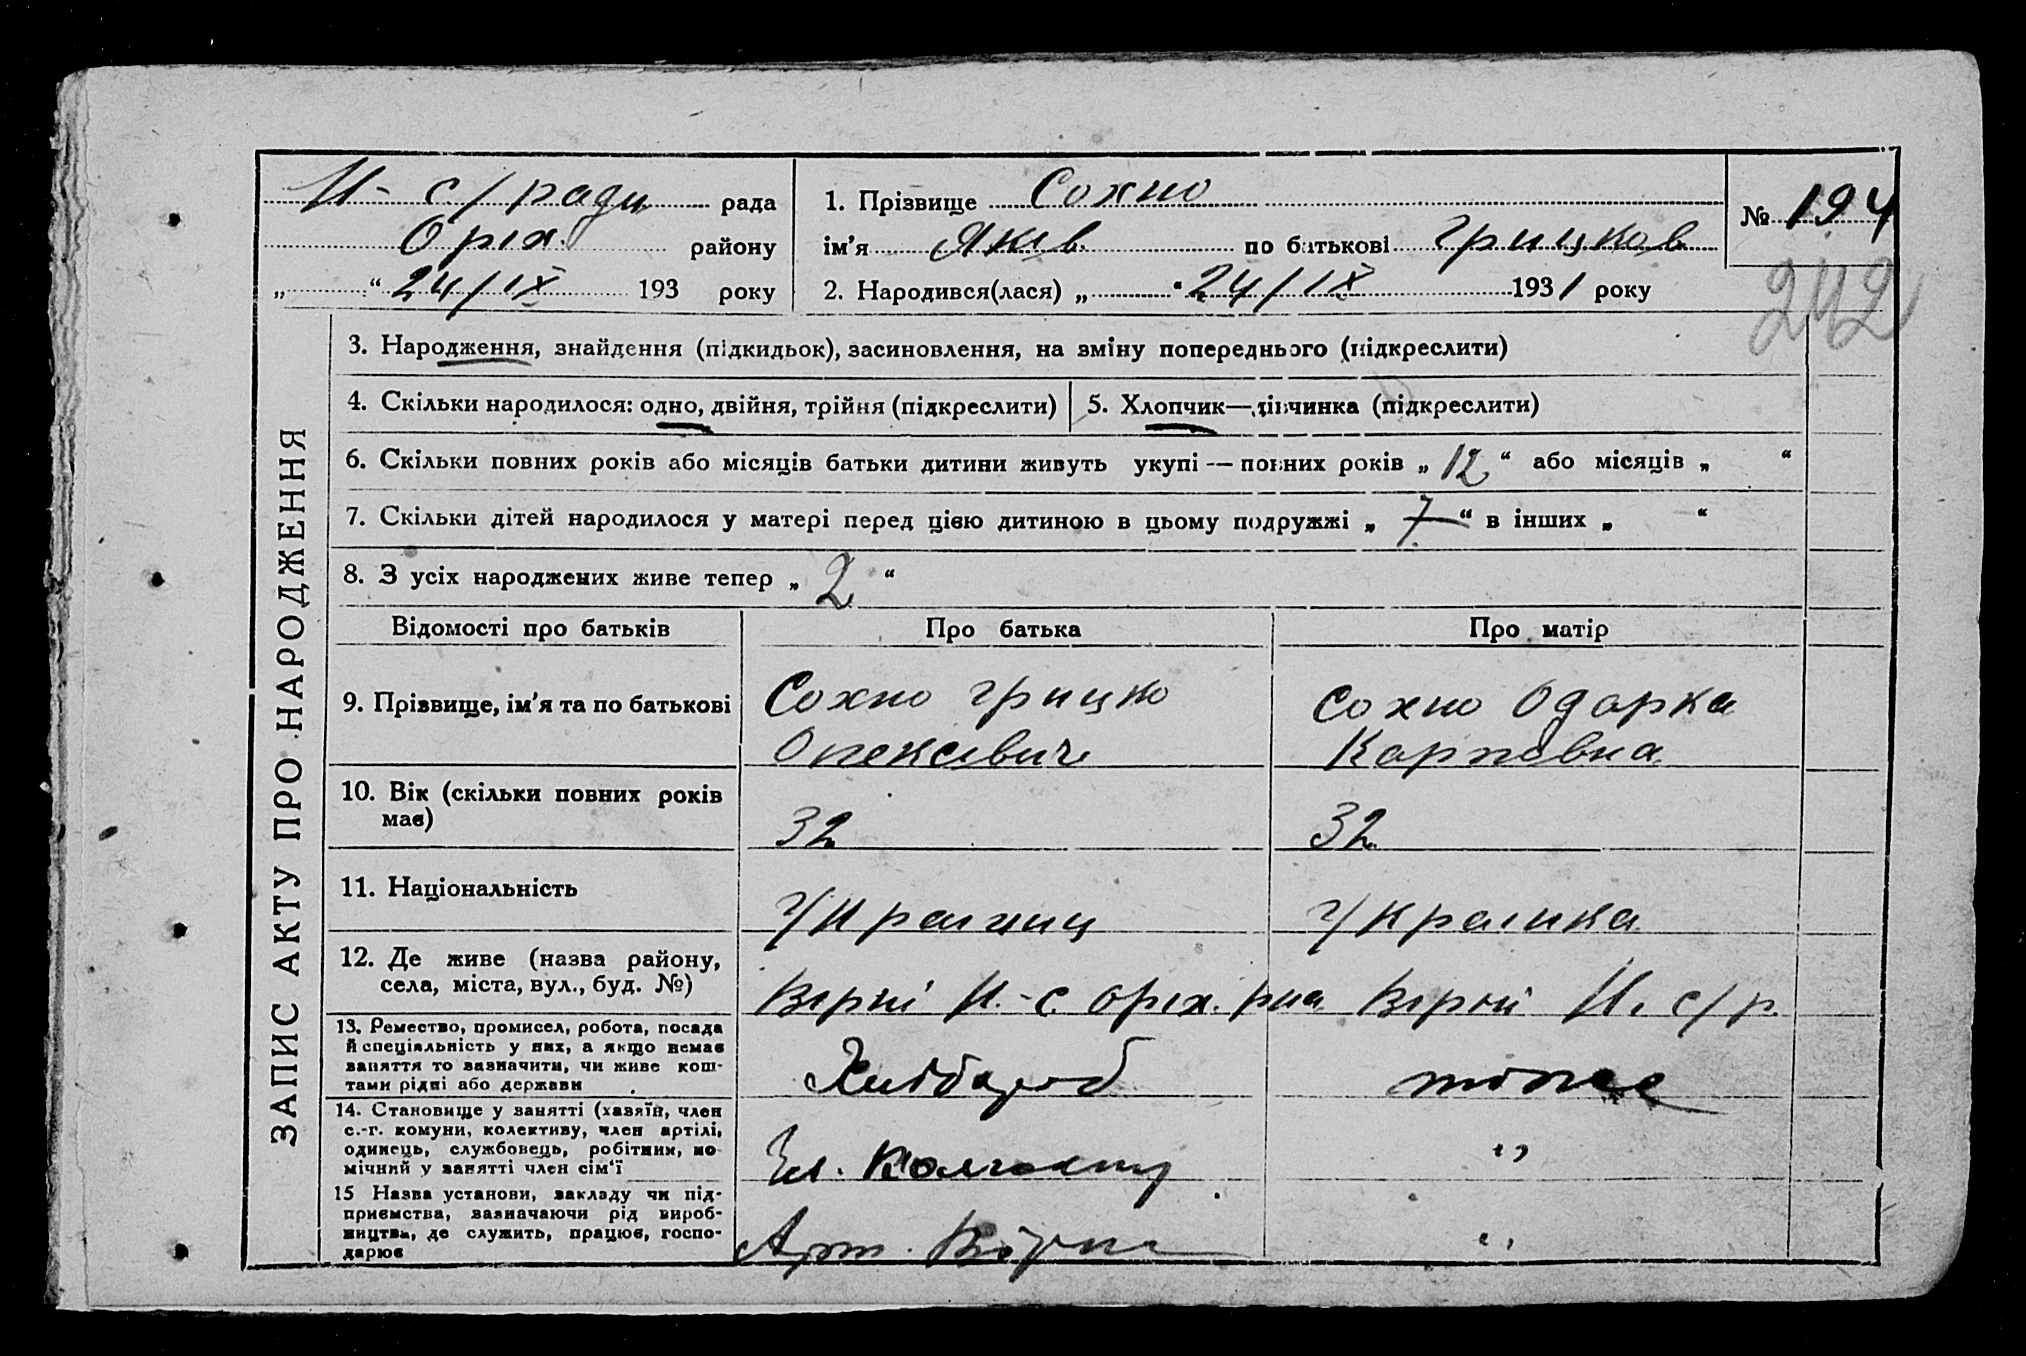 И- с/ради рада
Оріх. району
„ “ 24/IX 193 року
1. Прізвище Сохно
ім’я Яків по батькові Грицков
2. Народився(лася) „ “ 24/IX 1931 року
№ 194
242
ЗАПИС АКТУ ПРО НАРОДЖЕННЯ
3. Народження, знайдення (підкидьок), засиновлення, на зміну попереднього (підкреслити)
4. Скільки народилося: одно, двійня, трійня (підкреслити) 5. Хлопчик—дівчинка (підкреслити)
6. Скільки повних років або місяців батьки дитини живуть укупі — повних років „ 12 “ або місяців „ “
7. Скільки дітей народилося у матері перед цією дитиною в цьому подружжі „ 7 “ в інших „ “
8. З усіх народжених живе тепер „ 2 “
Відомості про батьків Про батька Про матір
9. Прізвище, ім’я та по батькові
Сохно Грицко
Олексевич
Сохно Одарка
Карповна
10. Вік (скільки повних років
має)
32
32
11. Національність
Украинц
Украинка
12. Де живе (назва району,
села, міста, вул., буд. №)
Вірні И.-с. Оріх. рна
Вірній И. с/р.
13. Ремество, промисел, робота, посада
й спеціяльність у них, а якщо немає
заняття то зазначити, чи живе кош-
тами рідні або держави
Хлібороб
тоже
14. Становище у занятті (хазяїн, член
с.-г. комуни, колективу, член артілі,
одинець, службовець, робітник, по-
мічний у занятті член сім‘ї
Чл. Колгоспу
"
15 Назва установи, закладу чи під-
приємства, зазначаючи рід вироб-
ництва, де служить, працює, госпо-
дарює
Арт.
"